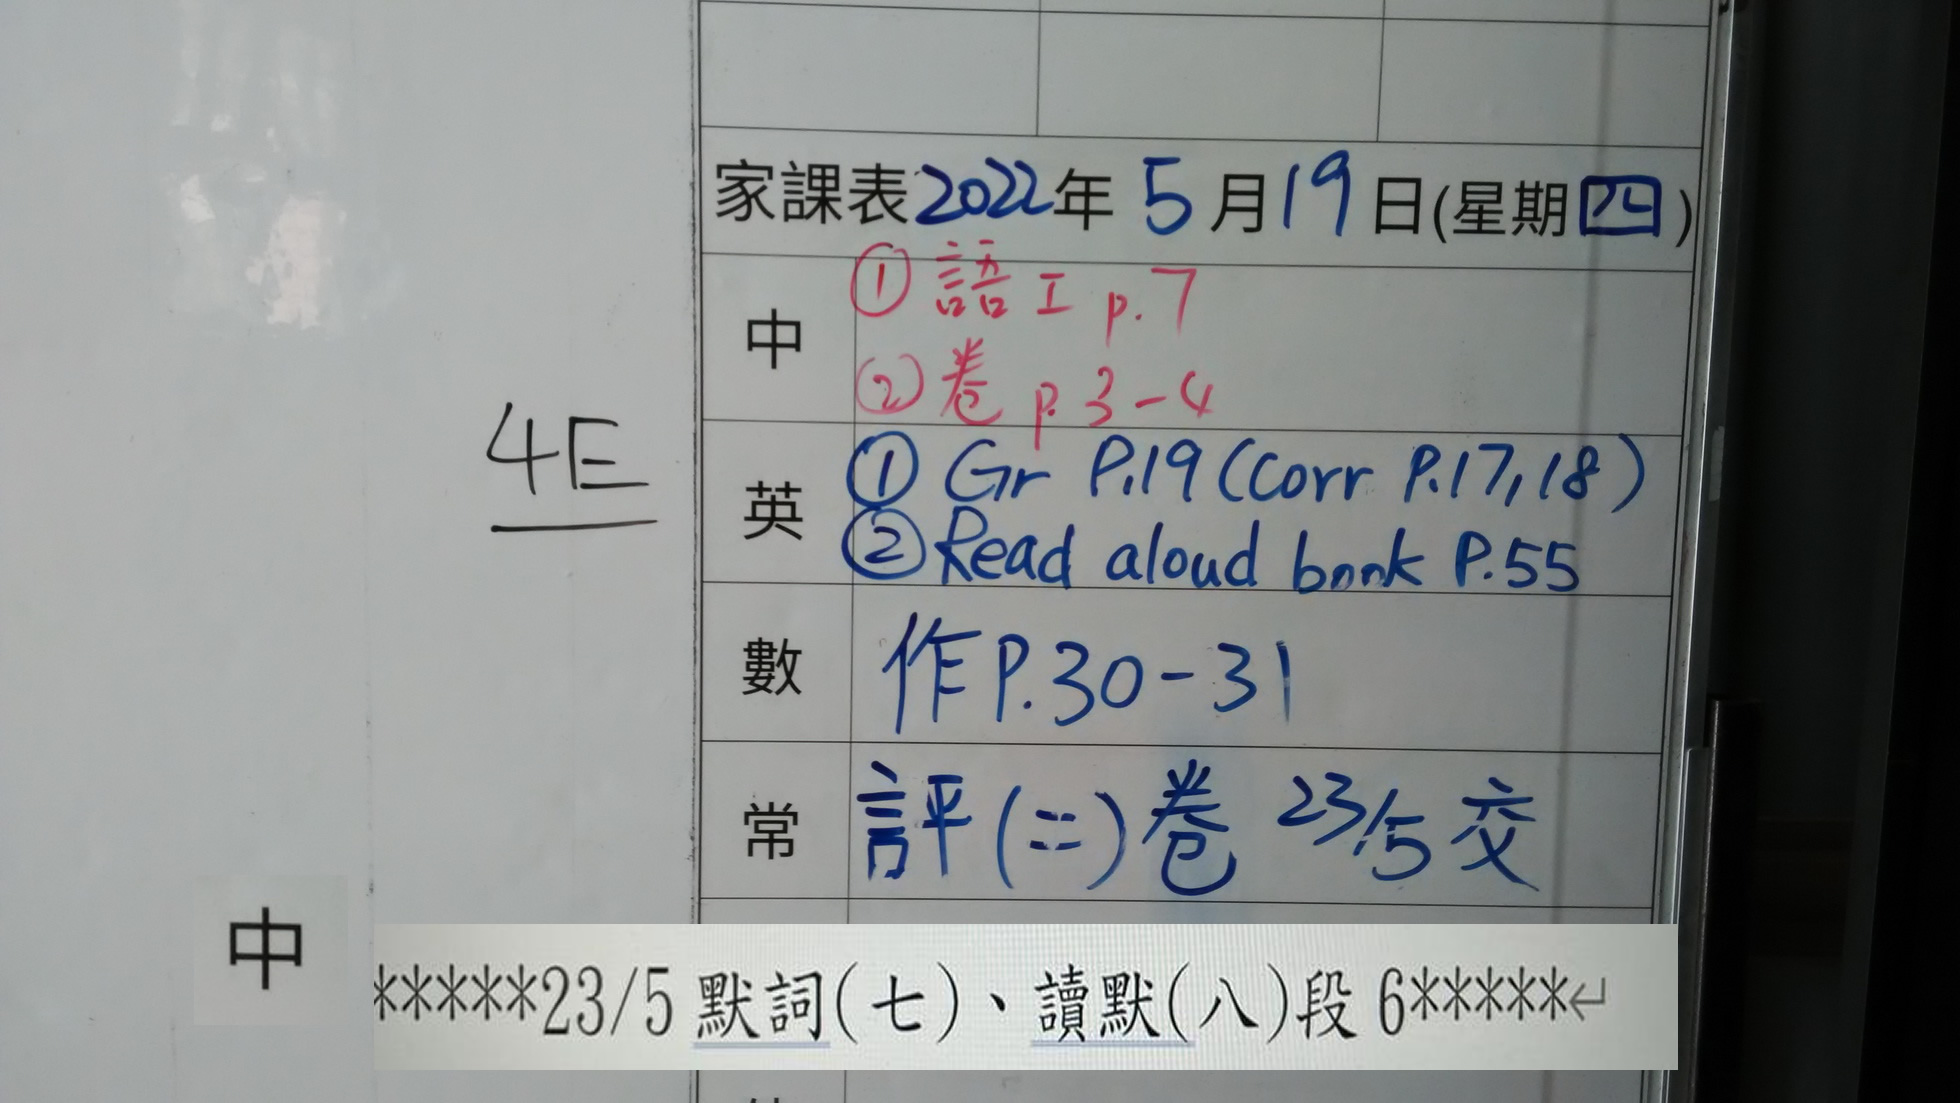 家課表2022年5月19日(星期四)
中
① 語工 p.7
② 卷 p.3-4
4E
英
① Gr P.19 (Corr P.17,18)
② Read aloud book P.55
數
作P.30-31
常
評(二)卷 23/5交
中
*****23/5 默詞(七)、讀默(八)段 6*****↵